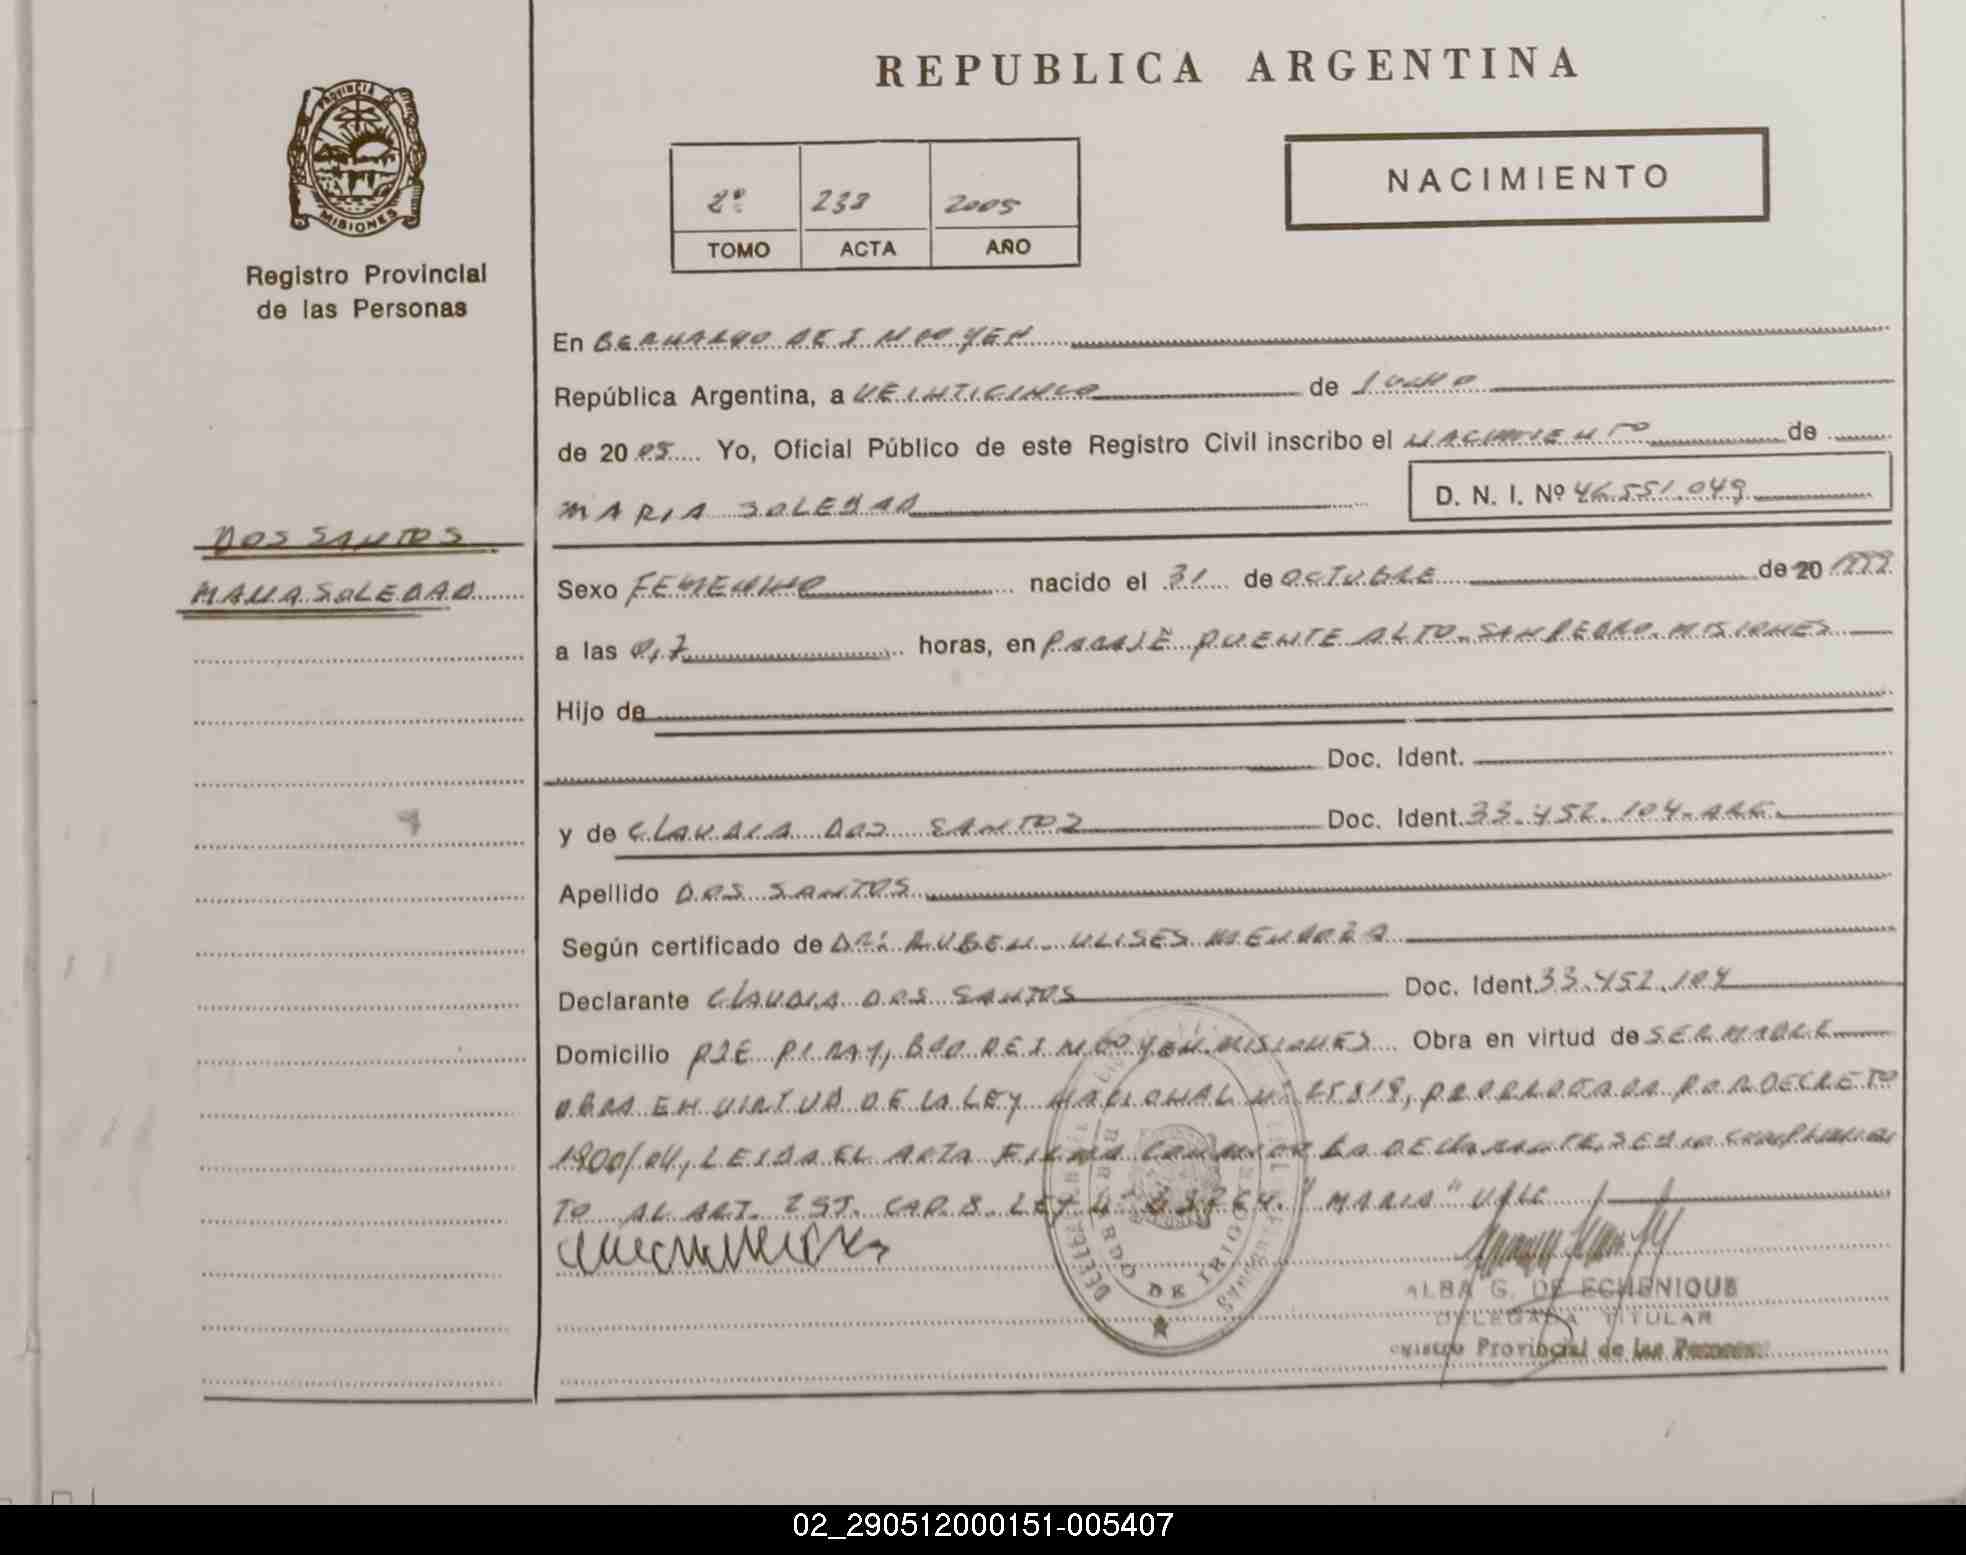 REPUBLICA ARGENTINA
PROVINCIA DE
MISIONES
Registro Provincial
de las Personas
NACIMIENTO
2º 238 2005
TOMO ACTA AÑO
En BERNARDO DE IRIGOYEN
República Argentina, a VEINTICINCO de JULIO
de 20 05 Yo, Oficial Público de este Registro Civil inscribo el NACIMIENTO de
MARIA SOLEDAD D. N. I. Nº 46.551.049
DOS SANTOS
MARIA SOLEDAD
Sexo FEMENINO nacido el 31 de OCTUBRE de 20 1999
a las 0,7 horas, en PARAJE PUENTE ALTO-SAN PEDRO-MISIONES
Hijo de
Doc. Ident.
y de CLAUDIA DOS SANTOS Doc. Ident. 33.452.104-ARG.
Apellido DOS SANTOS
Según certificado de DR: RUBEN-ULISES MENDOZA
Declarante CLAUDIA DOS SANTOS Doc. Ident. 33.452.104
Domicilio PJE PIRAY, BDO DE IRIGOYEN-MISIONES Obra en virtud de SER MADRE
OBRA EN VIRTUD DE LA LEY NACIONAL Nº 25819, PRORROGADA POR DECRETO
1900/04, LEIDA EL ACTA FIRMA CONMIGO LA DECLARANTE, SE DIO CUMPLIMIEN
TO AL ART. CAP. 8. LEY "MARIA" VALE
ALBA G. DE ECHENIQUE
DELEGADA TITULAR
Registro Provincial de las Personas
02_290512000151-005407